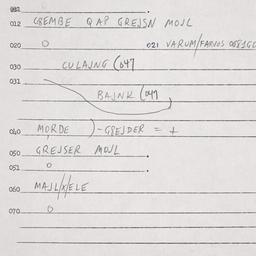 012 GBEMBE QAP GREJSN MOJL
020 O 021 VARUM/FARNOS
030 CULAJNG (047
031
BAJNK (047
040 MORDE ) - GREJDER = +
050 GREJSER MOJL
051 O
060 MAJL/X/ELE
070 O